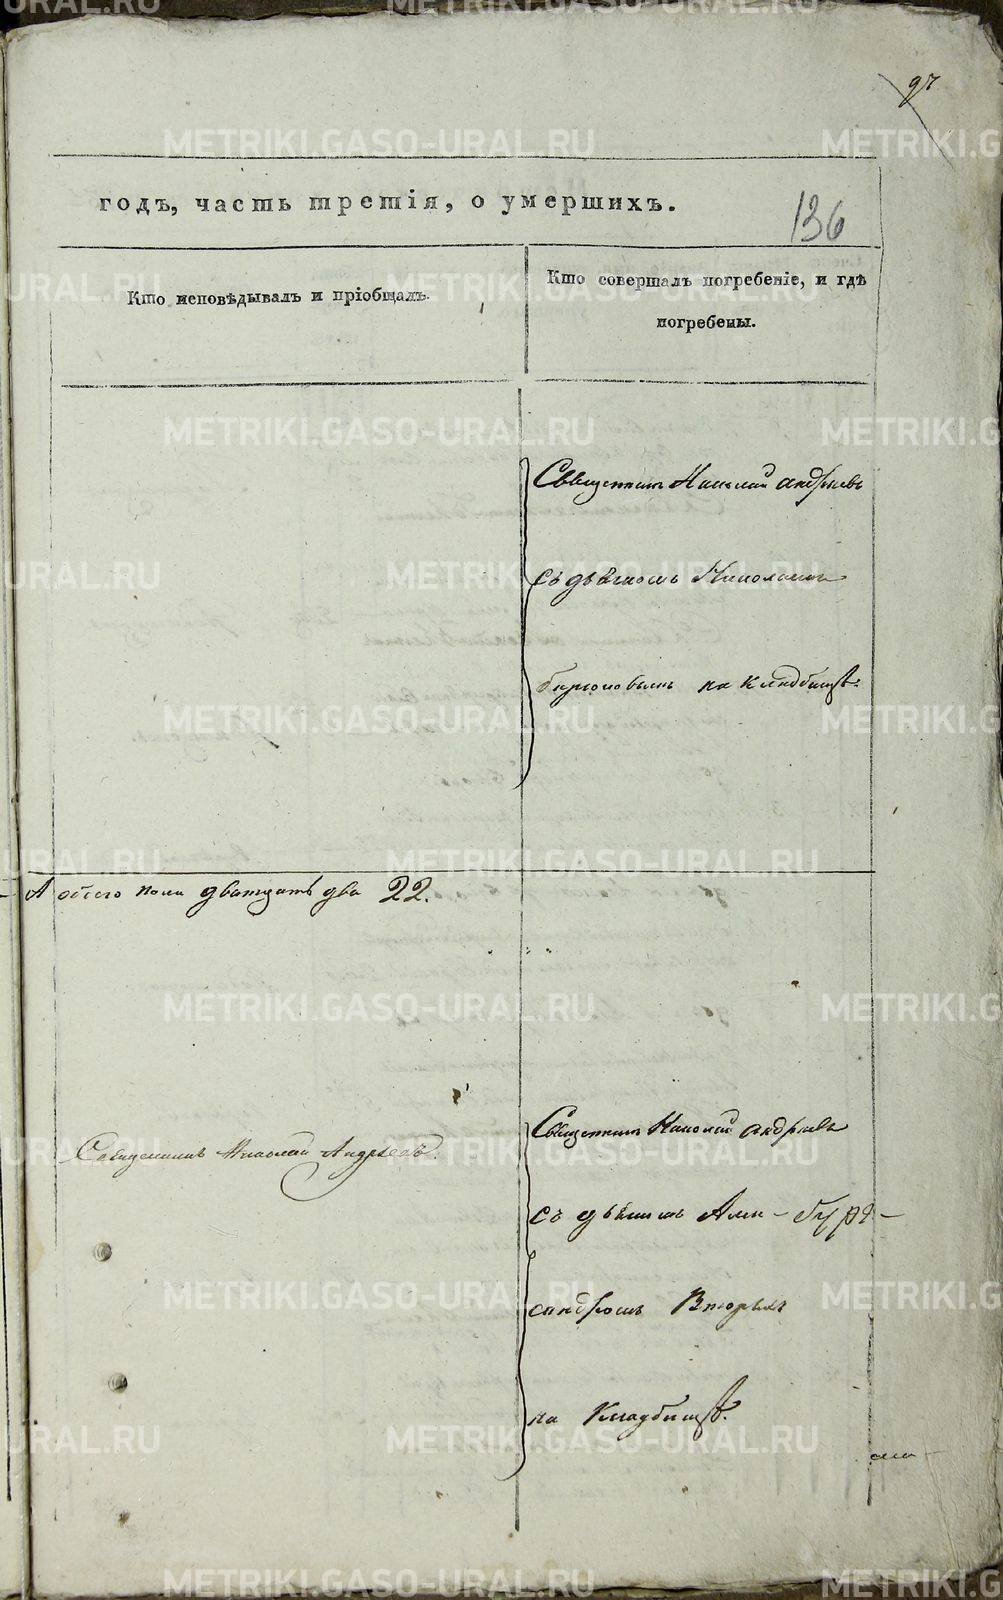 97
годъ, часть третія, о умершихъ.
136
Кто исповѣдывалъ и пріобщалъ.
Кто совершалъ погребеніе, и гдѣ
погребены.
Священникъ Николай андреевъ
съ дьячкомъ Николаемъ
бирюковымъ на кладбищѣ.
А обоего пола дватцать два 22.
Священникъ Николай андреевъ
Священникъ Николай Андреевъ.
съ дьячкомъ Алек-
сандромъ Вторыхъ
на кладбищѣ.
METRIKI.GASO-URAL.RU